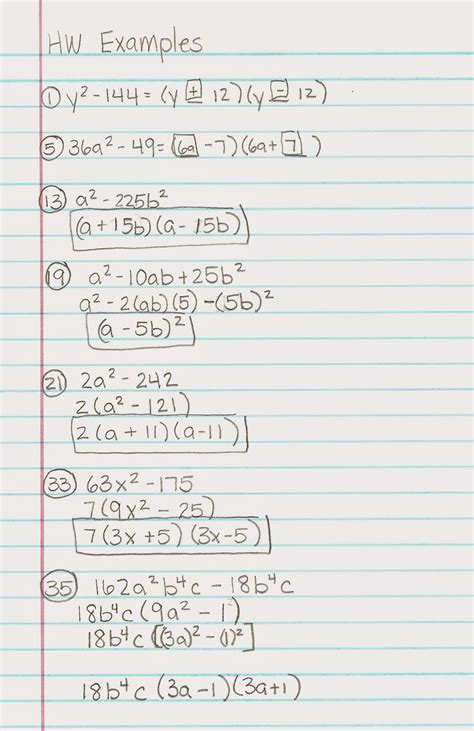 HW Examples
① y² - 144 = (y + 12)(y - 12)
⑤ 36a² - 49 = (6a - 7)(6a + 7)
⑬ a² - 225b²
(a + 15b)(a - 15b)
⑲ a² - 10ab + 25b²
a² - 2(ab)(5) - (5b)²
(a - 5b)²
㉑ 2a² - 242
2(a² - 121)
2(a + 11)(a - 11)
㉝ 63x² - 175
7(9x² - 25)
7(3x + 5)(3x - 5)
㉟ 162a²b⁴c - 18b⁴c
18b⁴c(9a² - 1)
18b⁴c[(3a)² - (1)²]
18b⁴c(3a - 1)(3a + 1)